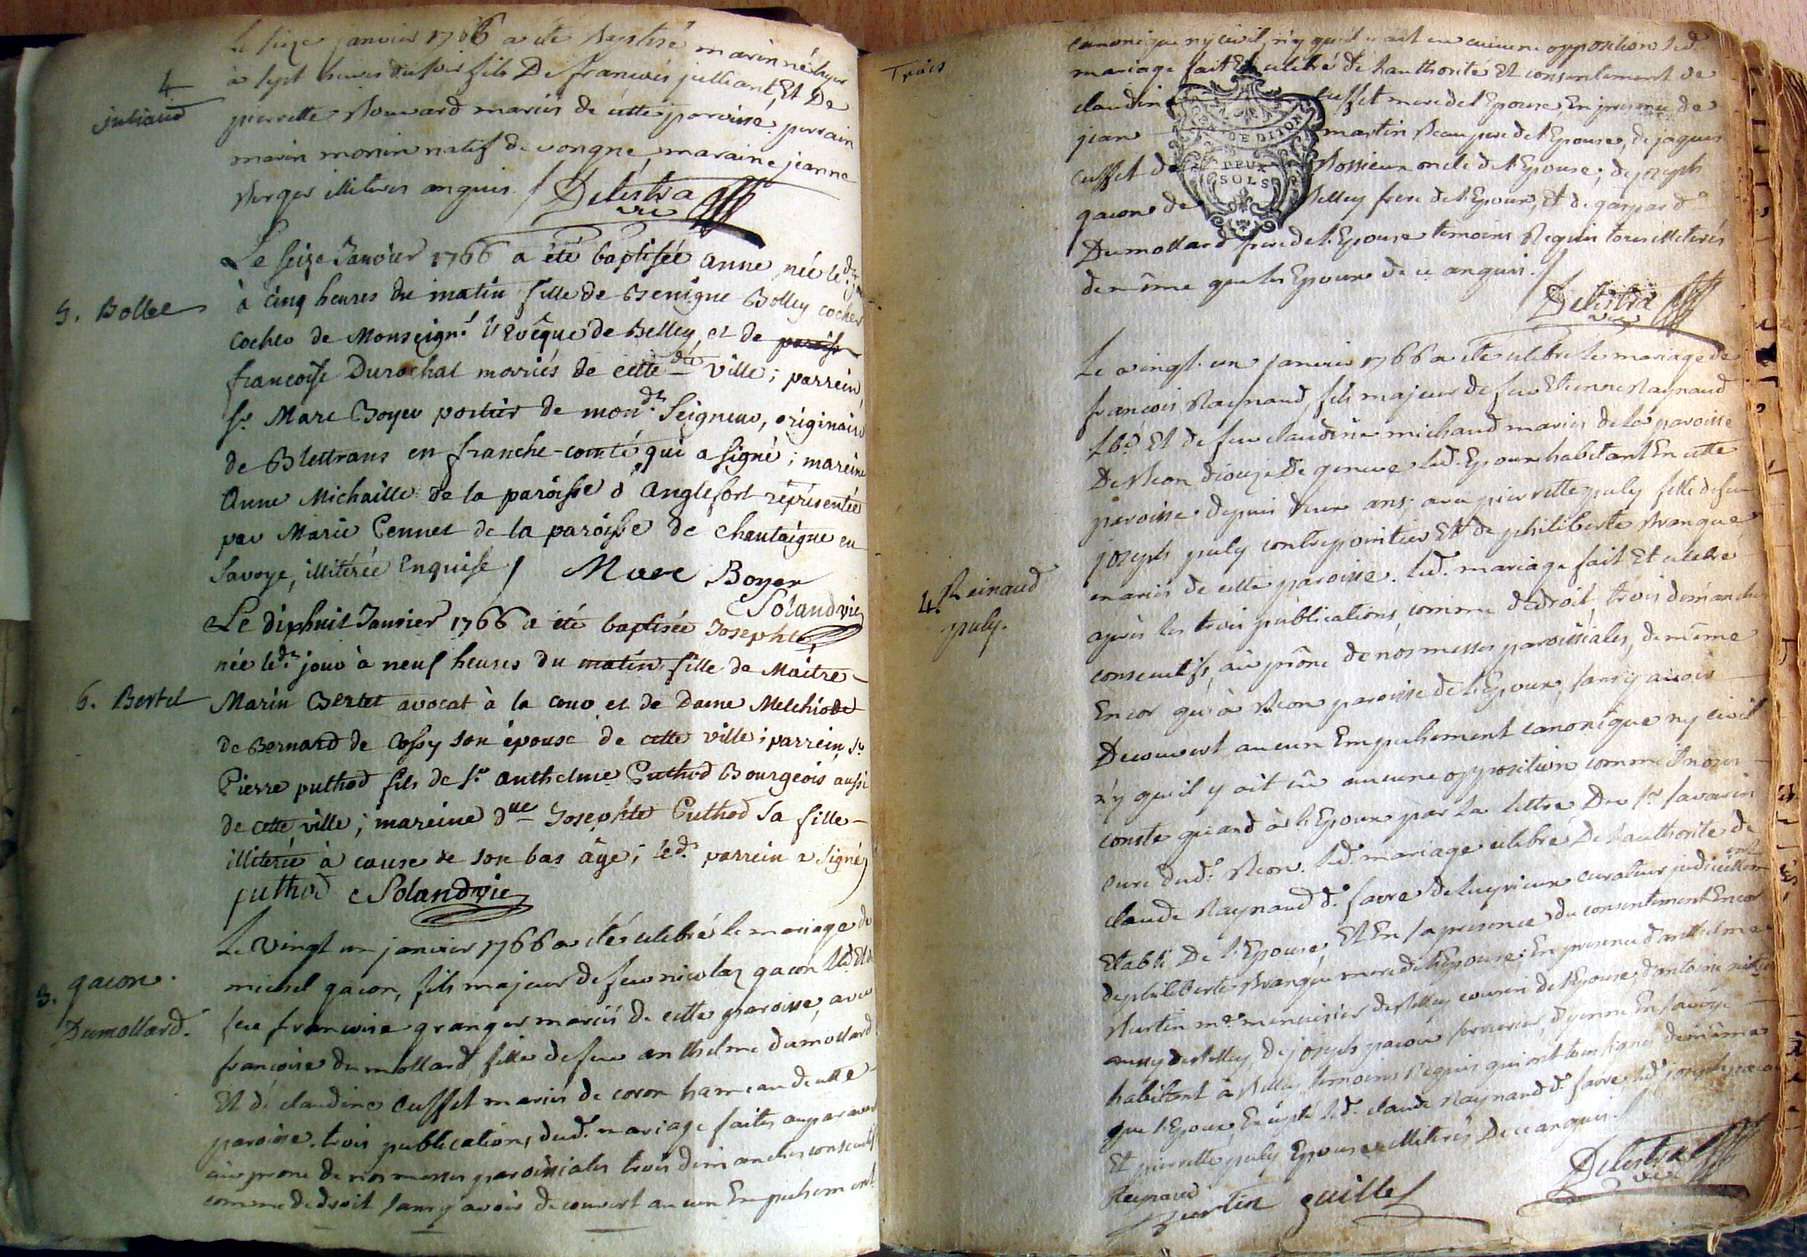 4
juliand
Le seize janvier 1766 a été baptisé marin né hyer
à sept heures du soir fils De francois julliant, Et De
pierrette Bouvard mariés de cette paroisse. parrain
marin monin natif de vongne, maraine jeanne
Berger illiteres enquis. / Delestra
vic
5. Bollee
Le seize Janvier 1766 a été baptisée anne née led. jour
à cinq heures du matin fille de Benigne Bolley cocher
cocher de Monseignr. l'Evêque de Belley, et de paroisse
francoise Durochat mariés de cette dte ville; parrein
sr. Marc Boyer portier de mondt. Seigneur, originaire
de Blettrans en franche-comté, qui a signé; mareine
Anne Michaille de la paroisse d'anglefort représentée
par Marie Cennet de la paroisse de Chautaigne en
Savoye, illitérée Enquise / Marc Boyer
Solandvic
6. Bertet
Le dixhuit Janvier 1766 a été baptisée Josephte
née led. jour à neuf heures du matin fille de Maître
Marin Bertet avocat à la cour et de Dame Melchiode
de Bernard de Cossy son épouse de cette ville; parrein sr.
Pierre puthod fils de sr. anthelme Puthod Bourgeois aussi
de cette ville; mareine dlle Josephte Puthod sa fille
illiterée à cause de son bas âge; led. parrein a signé
puthod Solandvic
3. gacon.
Dumollard.
Le vingt un janvier 1766 a été celebré le mariage de
michel gacon, fils majeur de feu nicolaz gacon Lbr. Et de
feue francoise granger mariés de cette paroisse, avec
francoise dumollard fille de feu anthelme dumollard
Et de claudine Cusset mariés de coron hameau de cette
paroisse. trois publications dud. mariage faites auparavant
au prone de nos messes paroissiales trois dimanches consecutifs
comme de droit sans y avoir decouvert aucun Empechement
Trois
canonique ny civil, n'y qu'il y ait eu aucune opposition led.
mariage fait Et celebré de l'authorité Et consentement de
claudine Cusset mere de l'Epouse, En presence de
jean martin Beau pere de l'Epouse, de jaques
Cusset de Rossieux oncle de l'Epouse; de joseph
gacon de Belley frere de l'Epoux, Et de gaspard
Dumollard frere de l'Epouse temoins Requis tous illiterés
de même que les Epoux de ce enquis. /
GEN. DE DIJON
DEUX
SOLS
Delestra
vic
4. Reinaud
puly.
Le vingt-un janvier 1766 a été celebré le mariage de
francois Raynaud, fils majeur de feu Etienne Raynaud
Lbr. Et de feue claudine michaud mariés de la paroisse
De Beon dioceze De geneve led. Epoux habitant En cette
paroisse depuis deux ans, avec pierrette puly fille de feu
joseph puly contrepointier Et de philiberte Branque
mariés de cette paroisse. led. mariage fait Et celebré
après les trois publications, comme de droit, trois dimanches
consecutifs, au prône de nos messes paroissiales, de même
Encor qu'à Beon paroisse de l'Epoux, sans y avoir
Decouvert aucun Empechement canonique ny civil
n'y qu'il y ait eû aucune opposition comme Il nous
conste quand à l'Epoux par la lettre Du sr. savarin
curé dud. Beon. led. mariage celebré De l'authorité de
claude Raynaud dt. favre de lucyrieux curateur judiciellement
Etabli De l'Epouse, Et En sa presence, du consentement Encor
de philiberte Branque mere de l'Epouse; En presence d'anthelme
Burtin me. menuisier de Belley cousin de l'Epouse, d'antoine
aussy de Belley, de joseph pacou serrurier, d'yenne En savoye
habitant à Belley temoins Requis qui ont tous signés de même
que l'Epoux Excepté led. claude Raynaud dt. favre led. joseph pacou
Et pierrette puly Epouse illiterés De ce enquis. /
Reynaud
Burtin guillet
Delestra
vic